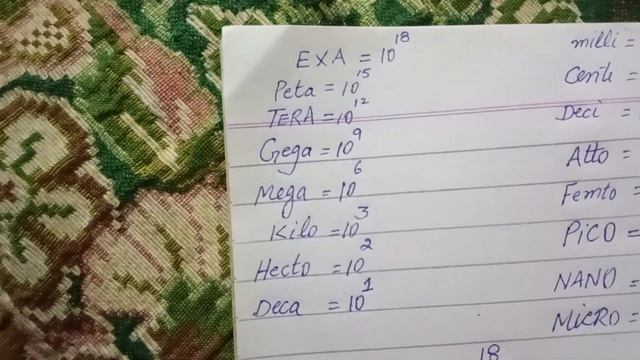 EXA = 10^18
Peta = 10^15
TERA = 10^12
Gega = 10^9
Mega = 10^6
Kilo = 10^3
Hecto = 10^2
Deca = 10^1
milli =
Centi =
Deci =
Atto =
Femto =
PICO =
NANO =
MICRO =
18